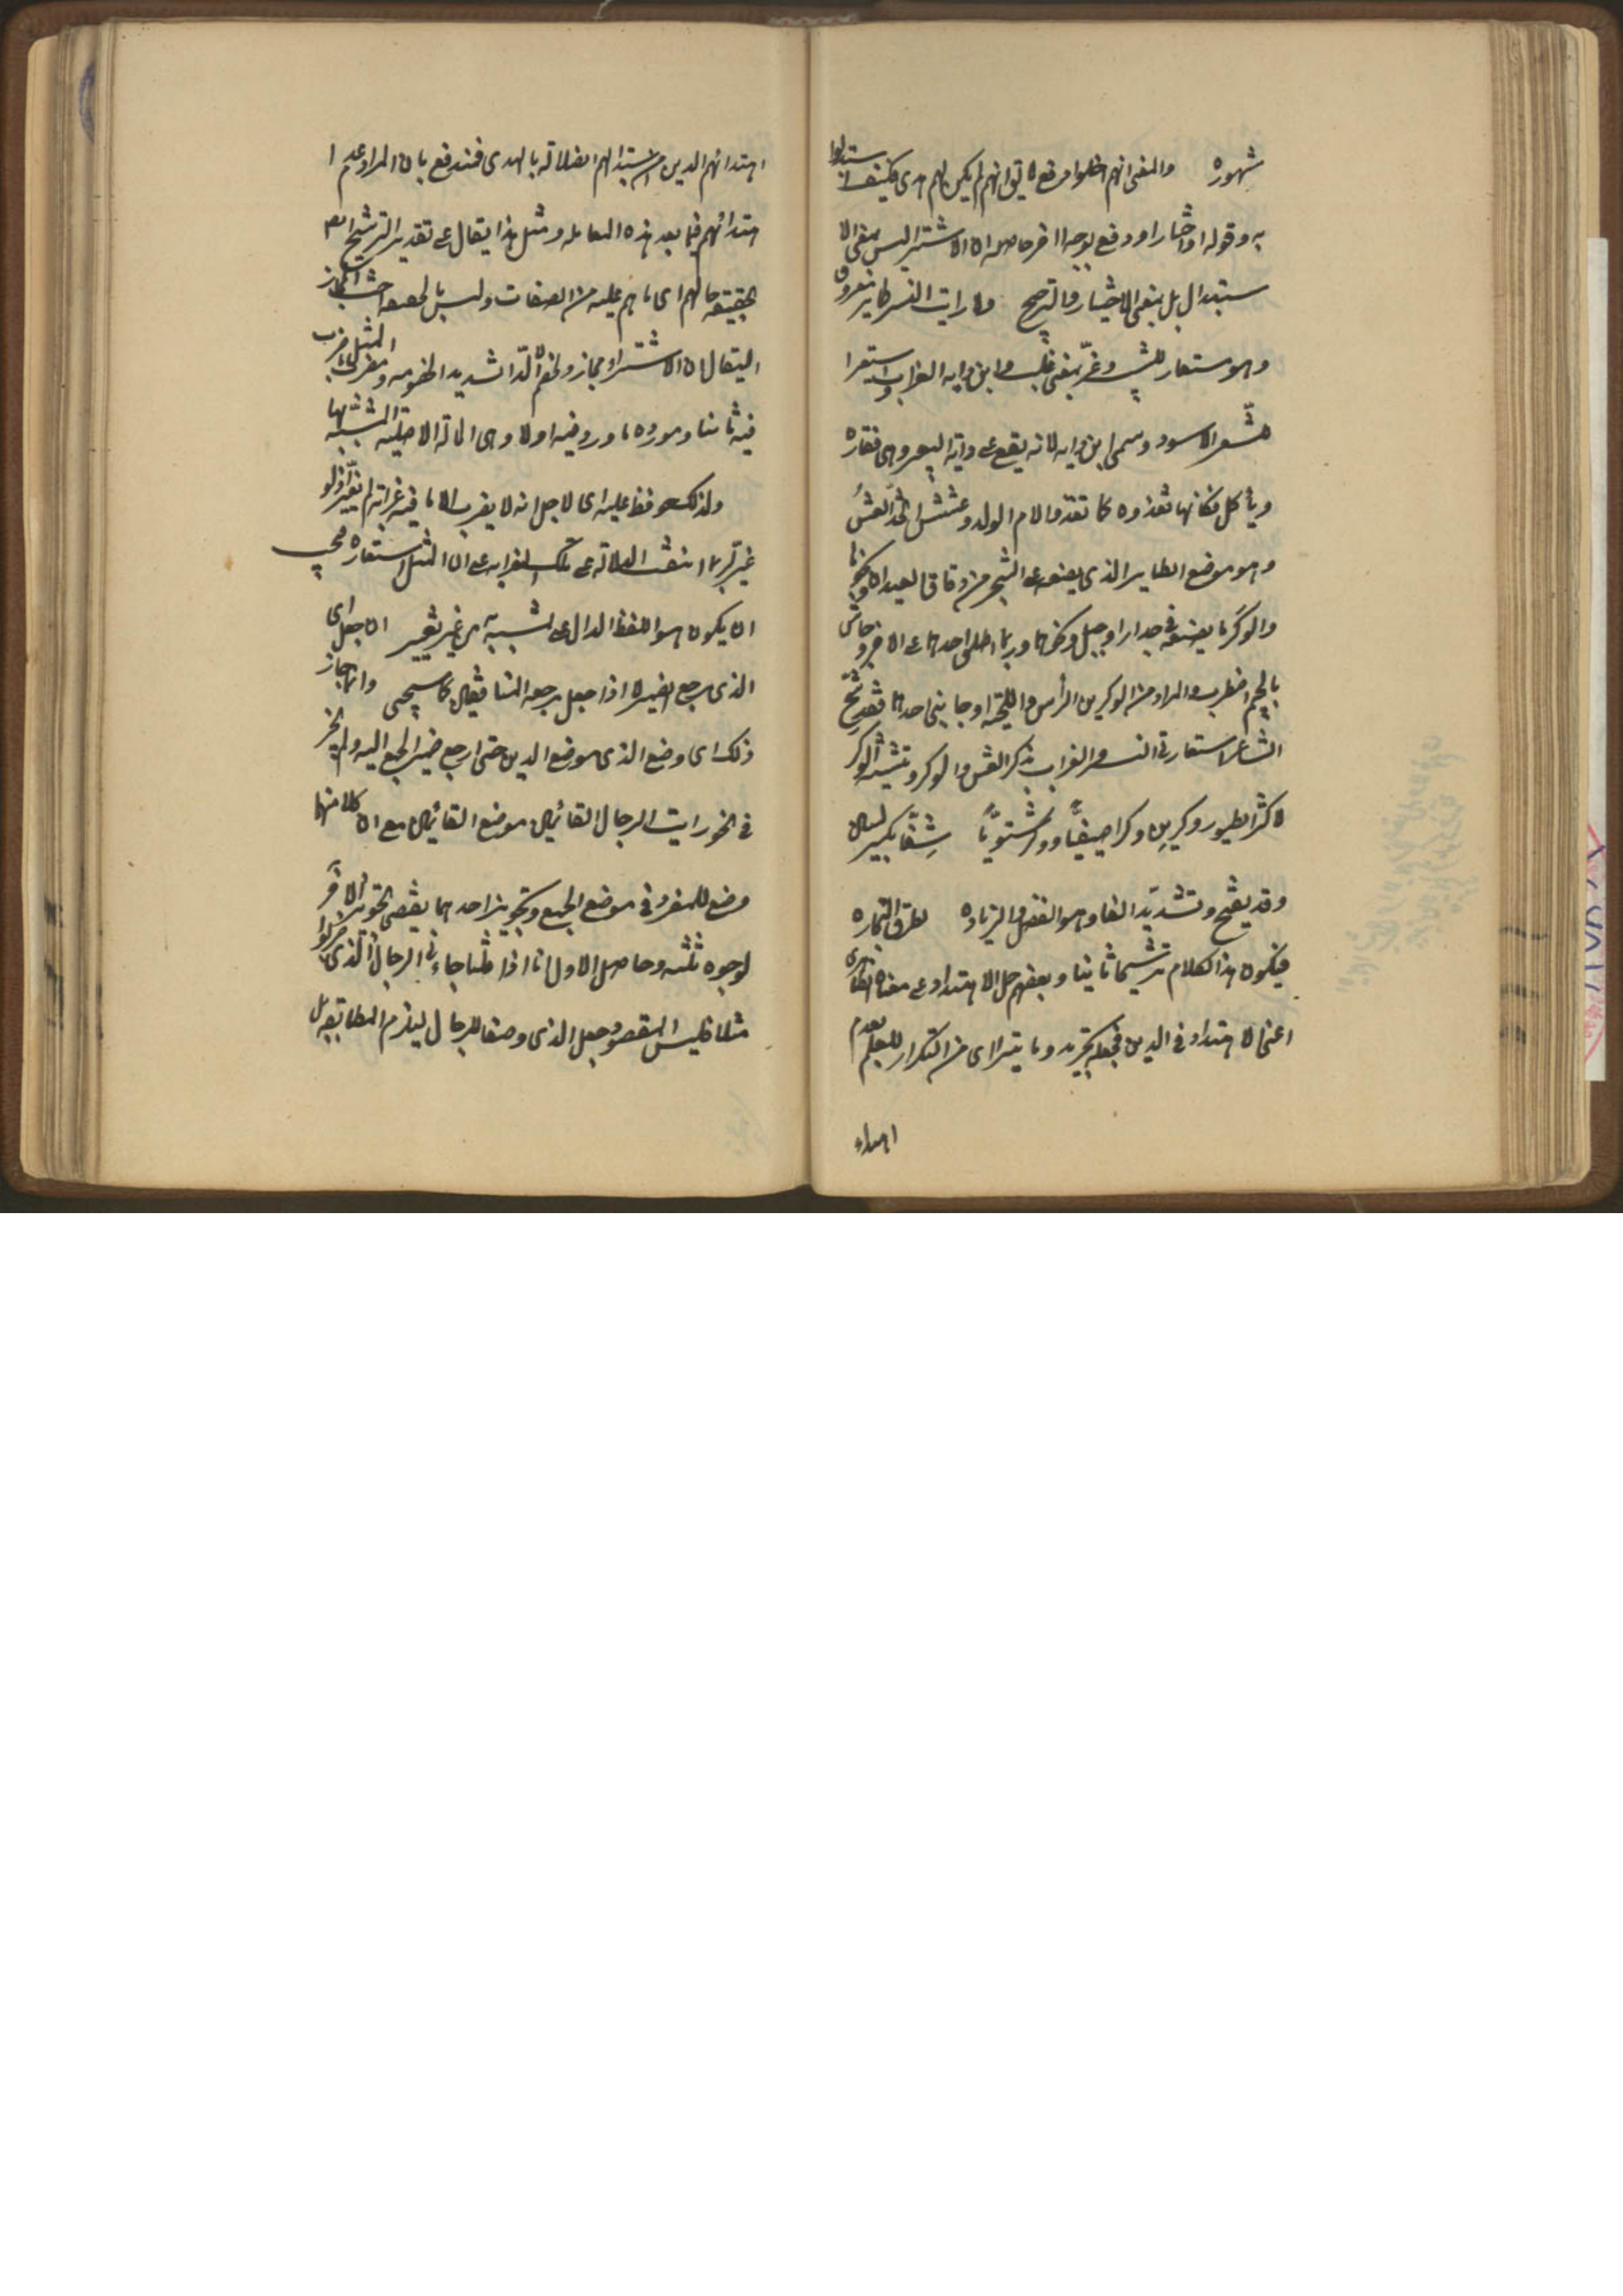 شهوره والمعنى انهم اخلوا دفع لا يق انهم لم يكن لهم هدى فكيف استبدلوا
به وقوله او اختاروا دفع بوجه اخر حاصله ان الاشتراء ليس بمعنى الا
ستبدال بل بمعنى الاختيار والترجيح ولما رايت النسر طاير معروف
وهو مستعار للشيب وعزّ بمعنى غلب وابن داية الغراب استعير
للشعر الاسود وسمى ابن داية لانه يقع على داية البعير وهى فقاره
وياكل فكانها تغذوه كما تغذو الام الولد وعشش اتخذ العش
وهو موضع الطاير الذى يصنعه على الشجر من دقاق العيدان ونحوها
والوكر ما يصنعه فى جدار او جبل ونحوها وربما اطلق احدهما على الاخر وجاش
بالجيم اضطرب والمراد من الوكرين الراس واللحية او جانبى احدهما فقد رشح
الشاعر استعارتى النسر والغراب بذكر العش والوكر وتثنية الوكر
لاكثر الطيور وكرين وكرا صيفيًّا ووكرا شتويًّا شِفًّا بكسر الشين
وقد يفتح وتشديد الفا وهو الفضل والزيادة لطرق التجاره
فيكون هذا الكلام ترشيحا ثانيا وبعضهم حمل الاهتداء على معناه الظاهرى
اعنى الاهتداء فى الدين فجعله تجريد وما يترااى من التكرار للعلم بعدم
اهتداء
اهتدائهم الدين من استبدالهم الضلالة بالهدى فمندفع بان المراد عدم ا
هتدائهم فيما بعد هذه المعامله ومثل هذا يقال على تقدير الترشيح ايضا
بحقيقة حالهم اى ما هم عليه من الصفات وليس بالحقيقة المجاز
ليقال ان الاشتراء مجاز ولخصم الالدّ الشديد الخصومه ومضرب المثل ما ضرب
فيه ثانيا ومورده ما ورد فيه اولا وهى الحالة الاصلية المشبه بها
ولذلك حوفظ عليه اى لاجل انه لا يضرب الا ما فيه غرابة لم يغيّر اذ لو
غير لربما انتفت الدلالة على تلك الغرابه على ان المثل استعاره فيجب
ان يكون هو اللفظ الدال على المشبه به من غير تغيير ان جعل اى
الذى مرجع الضمير اذا جعل مرجعه المنافقين كما سيجى وانما جاز
ذلك اى وضع الذى موضع الذين حتى ارجع ضمير الجمع اليه ولم يجز
فى نحو رايت الرجال القائم موضع القائمين مع ان كلا منهما
وضع للمفرد فى موضع الجمع وتجويز احدهما يقتضى تجويز الاخر
لوجوه ثلثه وحاصل الاول انا اذا قلنا جاءنى الرجال الذى
مثلا فليس المقصود جعل الذى وصفا للرجال ليلزم المطابقه بل